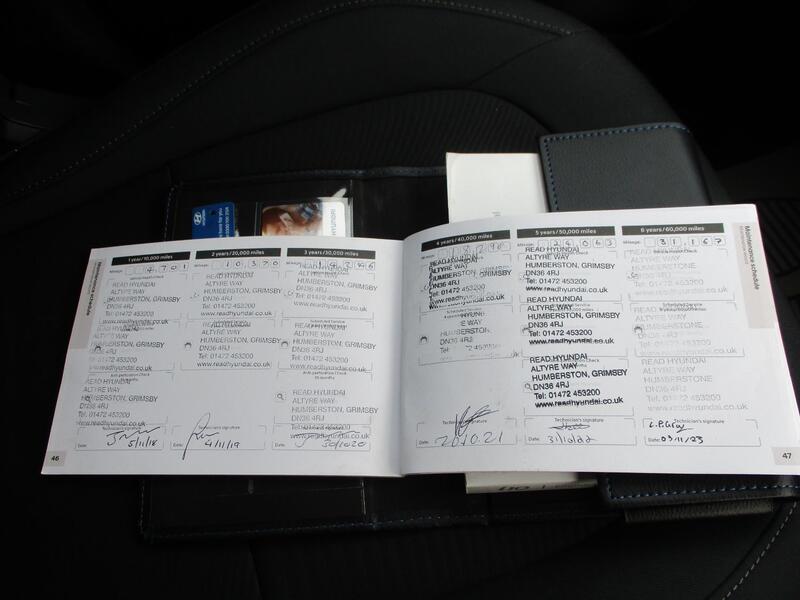 Maintenance schedule
1 year/10,000 miles
Mileage: 4701
READ HYUNDAI
ALTYRE WAY
HUMBERSTON, GRIMSBY
DN36 4RJ
Tel: 01472 453200
www.readhyundai.co.uk
READ HYUNDAI
ALTYRE WAY
DN36 4RJ
Tel: 01472 453200
www.readhyundai.co.uk
READ HYUNDAI
ALTYRE WAY
HUMBERSTON, GRIMSBY
DN36 4RJ
Tel: 01472 453200
www.readhyundai.co.uk
Technician's signature
Date: 5/11/18
2 years/20,000 miles
Mileage: 10370
READ HYUNDAI
ALTYRE WAY
HUMBERSTON, GRIMSBY
DN36 4RJ
Tel: 01472 453200
www.readhyundai.co.uk
READ HYUNDAI
ALTYRE WAY
HUMBERSTON, GRIMSBY
DN36 4RJ
Tel: 01472 453200
www.readhyundai.co.uk
Technician's signature
Date: 4/11/19
3 years/30,000 miles
Mileage:
READ HYUNDAI
ALTYRE WAY
HUMBERSTON, GRIMSBY
DN36 4RJ
Tel: 01472 453200
www.readhyundai.co.uk
Scheduled Service
ALTYRE WAY
HUMBERSTON, GRIMSBY
DN36 4RJ
Tel: 01472 453200
www.readhyundai.co.uk
Anti-perforation Check
READ HYUNDAI
ALTYRE WAY
HUMBERSTON, GRIMSBY
DN36 4RJ
www.readhyundai.co.uk
Technician's signature
Date: 30/10/20
46
4 years/40,000 miles
Mileage:
READ HYUNDAI
ALTYRE WAY
HUMBERSTON, GRIMSBY
DN36 4RJ
Tel: 01472 453200
www.readhyundai.co.uk
Technician's signature
Date: 20.10.21
5 years/50,000 miles
Mileage: 24063
READ HYUNDAI
ALTYRE WAY
HUMBERSTON, GRIMSBY
DN36 4RJ
Tel: 01472 453200
www.readhyundai.co.uk
READ HYUNDAI
ALTYRE WAY
HUMBERSTON, GRIMSBY
DN36 4RJ
Tel: 01472 453200
www.readhyundai.co.uk
READ HYUNDAI
ALTYRE WAY
HUMBERSTON, GRIMSBY
DN36 4RJ
Tel: 01472 453200
www.readhyundai.co.uk
Technician's signature
Date: 31/10/22
6 years/60,000 miles
Mileage: 31167
READ HYUNDAI
ALTYRE WAY
HUMBERSTONE
DN36 4RJ
Tel: 01472 453200
www.readhyundai.co.uk
Scheduled Service
READ HYUNDAI
ALTYRE WAY
HUMBERSTONE
DN36 4RJ
Tel: 01472 453200
www.readhyundai.co.uk
READ HYUNDAI
ALTYRE WAY
HUMBERSTONE
DN36 4RJ
Tel: 01472 453200
www.readhyundai.co.uk
Technician's signature
Date: 03/11/23
Maintenance schedule
47
HYUNDAI